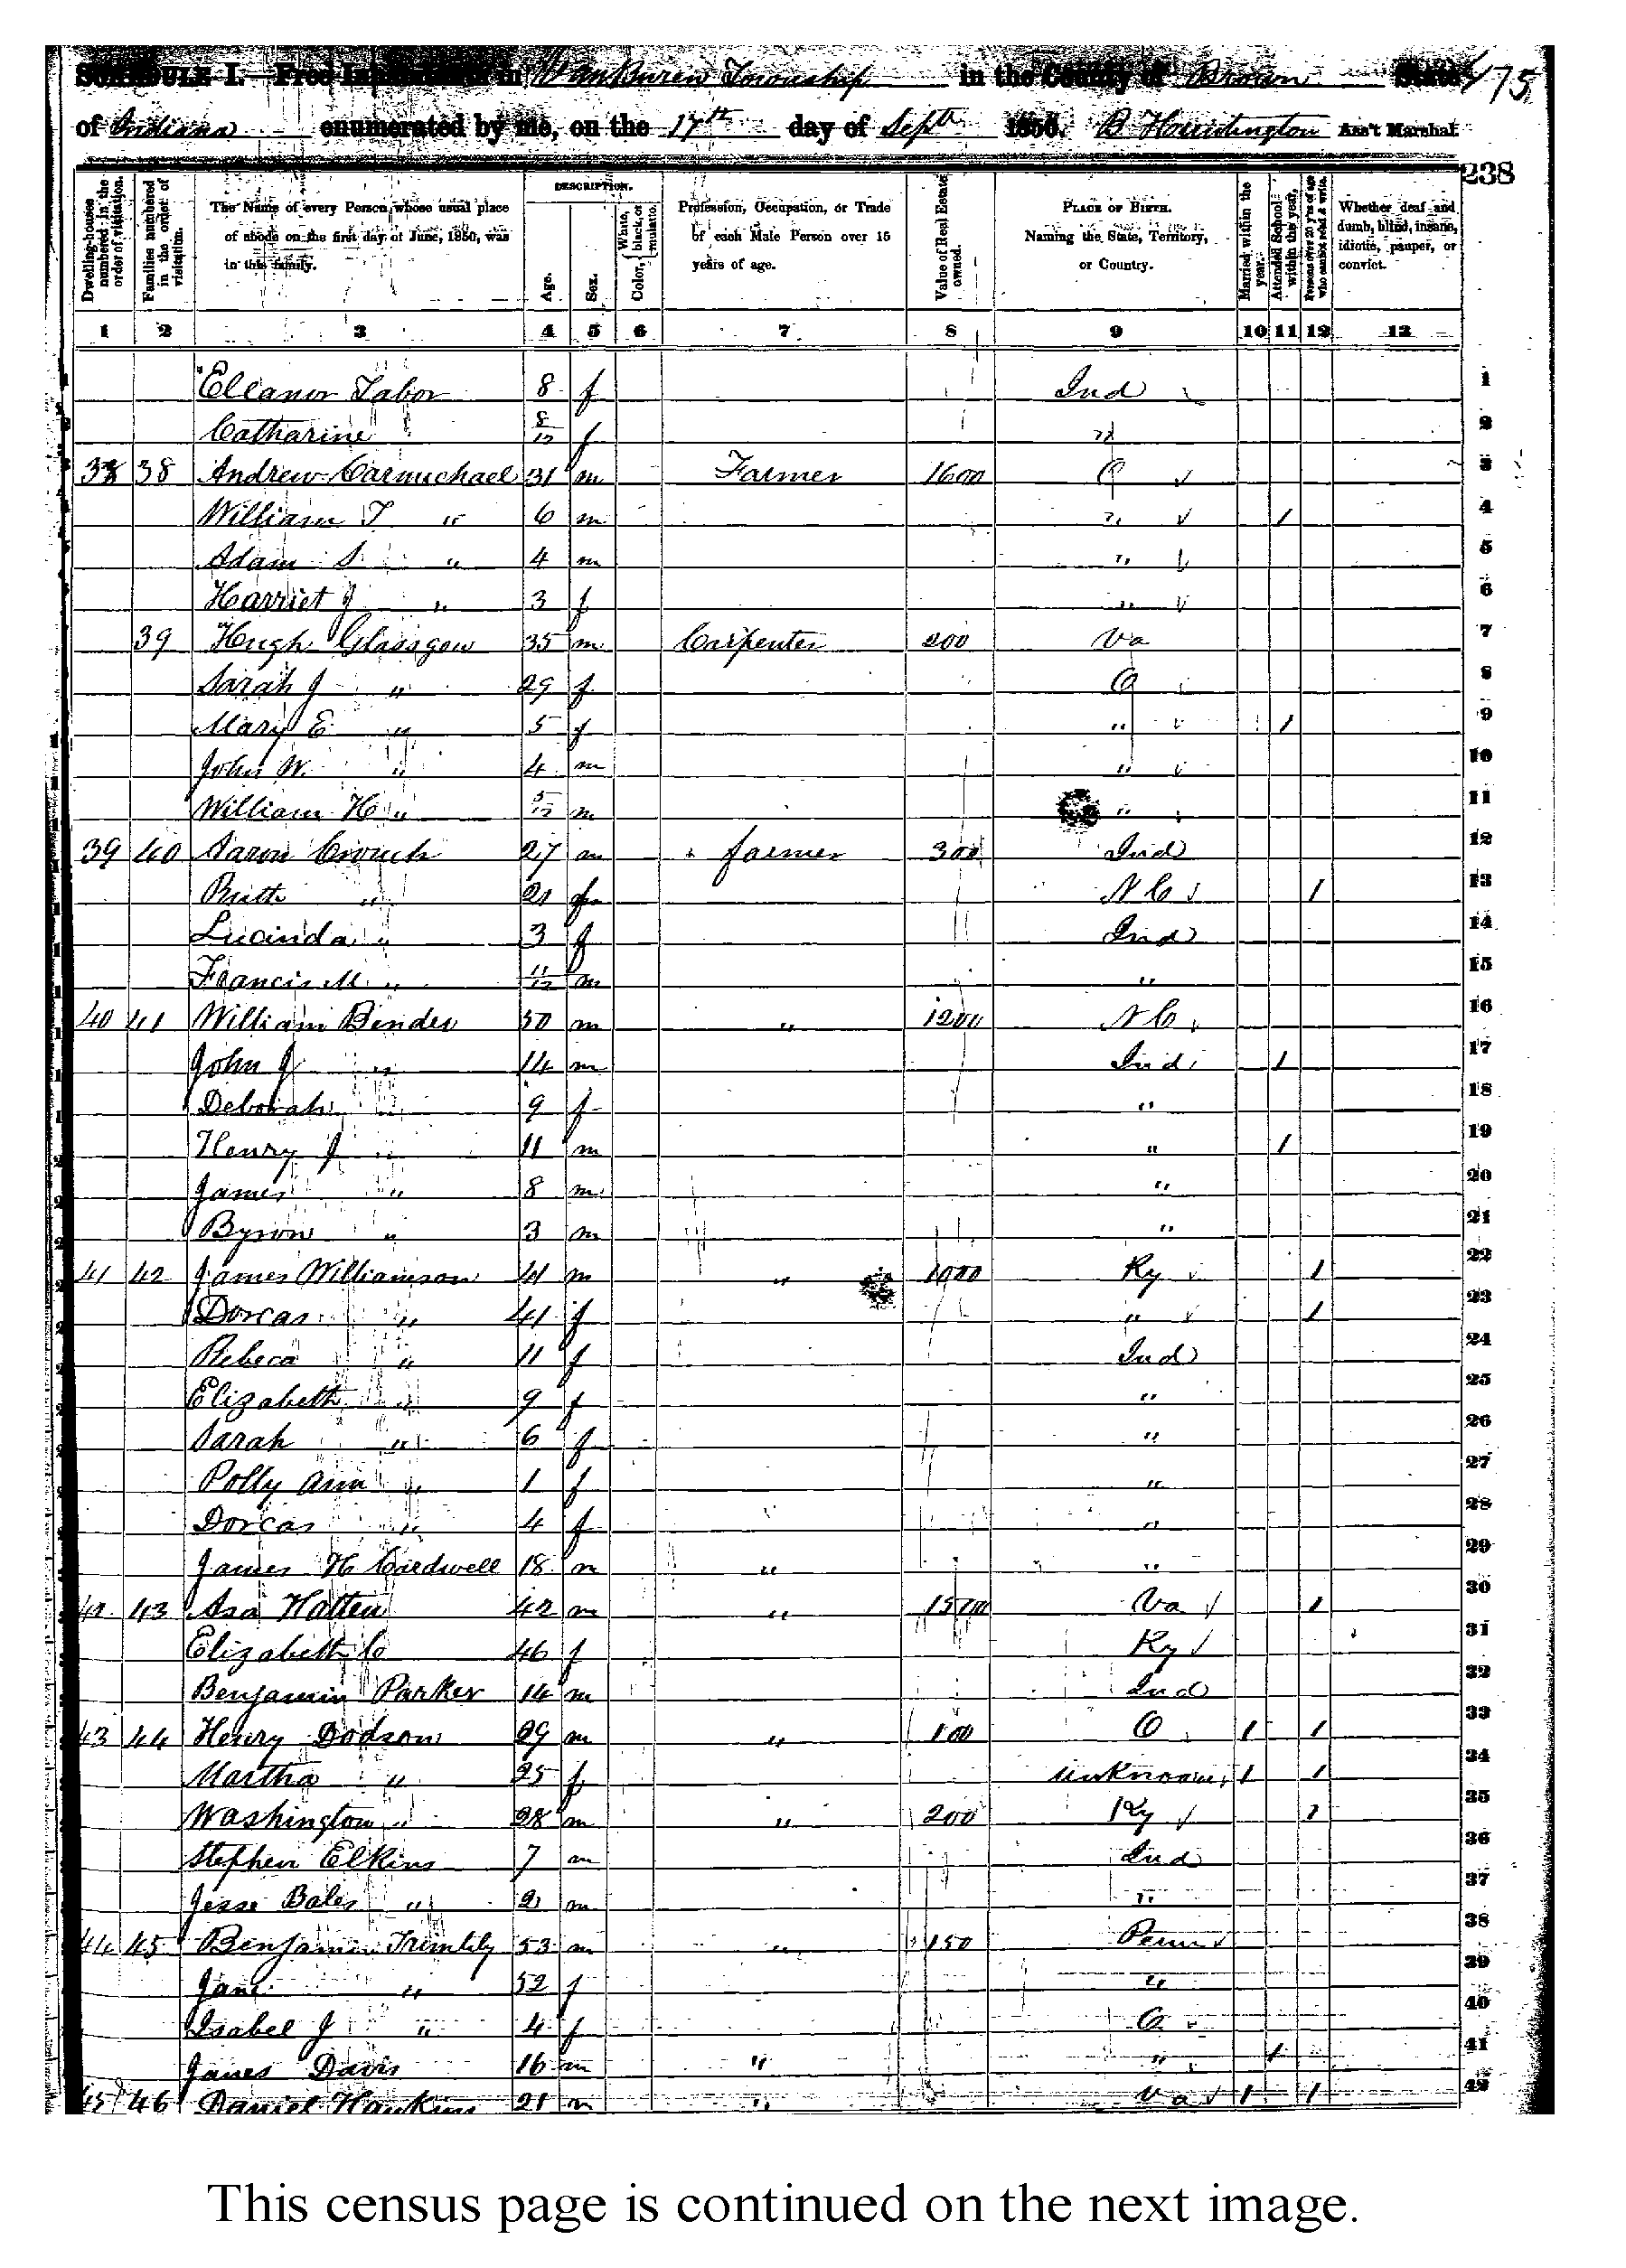 SCHEDULE I. Free Inhabitants in Van Buren Township in the County of Brown State 475
of Indiana enumerated by me, on the 17th day of Septh 1850. B Ass't Marshal.
238
Dwelling-houses numbered in the order of visitation.
Families numbered in the order of visitation.
The Name of every Person whose usual place of abode on the first day of June, 1850, was in this family.
DESCRIPTION.
Age.
Sex.
Color, White, black, or mulatto.
Profession, Occupation, or Trade of each Male Person over 15 years of age.
Value of Real Estate owned.
PLACE OF BIRTH. Naming the State, Territory, or Country.
Married within the year.
Attended School within the year.
Persons over 20 y'rs of age who cannot read & write.
Whether deaf and dumb, blind, insane, idiotic, pauper, or convict.
1 2 3 4 5 6 7 8 9 10 11 12 13
Eleanor Tabor 8 f Ind 1
Catharine 8/12 f " 2
38 38 Andrew Carmichael 31 m Farmer 1600 O 3
William T " 6 m " / 4
Adam S " 4 m " 5
Harriet J " 3 f " 6
39 Hugh Glasgow 35 m Carpenter 200 Va 7
Sarah J " 29 f O 8
Mary E " 5 f " / 9
John W. " 4 m " 10
William H " 5/12 m " 11
39 40 Aaron Crouch 27 m farmer 300 Ind 12
Ruth " 21 f N C / 13
Lucinda " 3 f Ind 14
Francis M. " 11/12 m " 15
40 41 William Bender 50 m " 1200 N C 16
John J " 14 m Ind / 17
Deborah " 9 f " 18
Henry J " 11 m " / 19
James " 8 m " 20
Byron " 3 m " 21
41 42 James Williamson 41 m " 1000 Ky / 22
Dorcas " 41 f " / 23
Rebeca " 11 f Ind 24
Elizabeth " 9 f " 25
Sarah " 6 f " 26
Polly Ann " 1 f " 27
Dorcas " 4 f " 28
James H Cardwell 18 m " " 29
42 43 Asa Hatten 42 m " 1500 Va / 30
Elizabeth Co 46 f Ky 31
Benjamin Parker 14 m Ind 32
43 44 Henry Dodson 29 m " 100 O / / 33
Martha " 25 f unknown / / 34
Washington " 28 m " 200 Ky 1 35
Stephen Elkins 7 m Ind 36
Jesse Bales " 2 m " 37
44 45 Benjamin 53 m " 150 Penn 38
Jane " 52 f " 39
Isabel J " 4 f O 40
James Davis 16 m " " / 41
45 46 Daniel Hawkins 21 m " Va / / 42
This census page is continued on the next image.